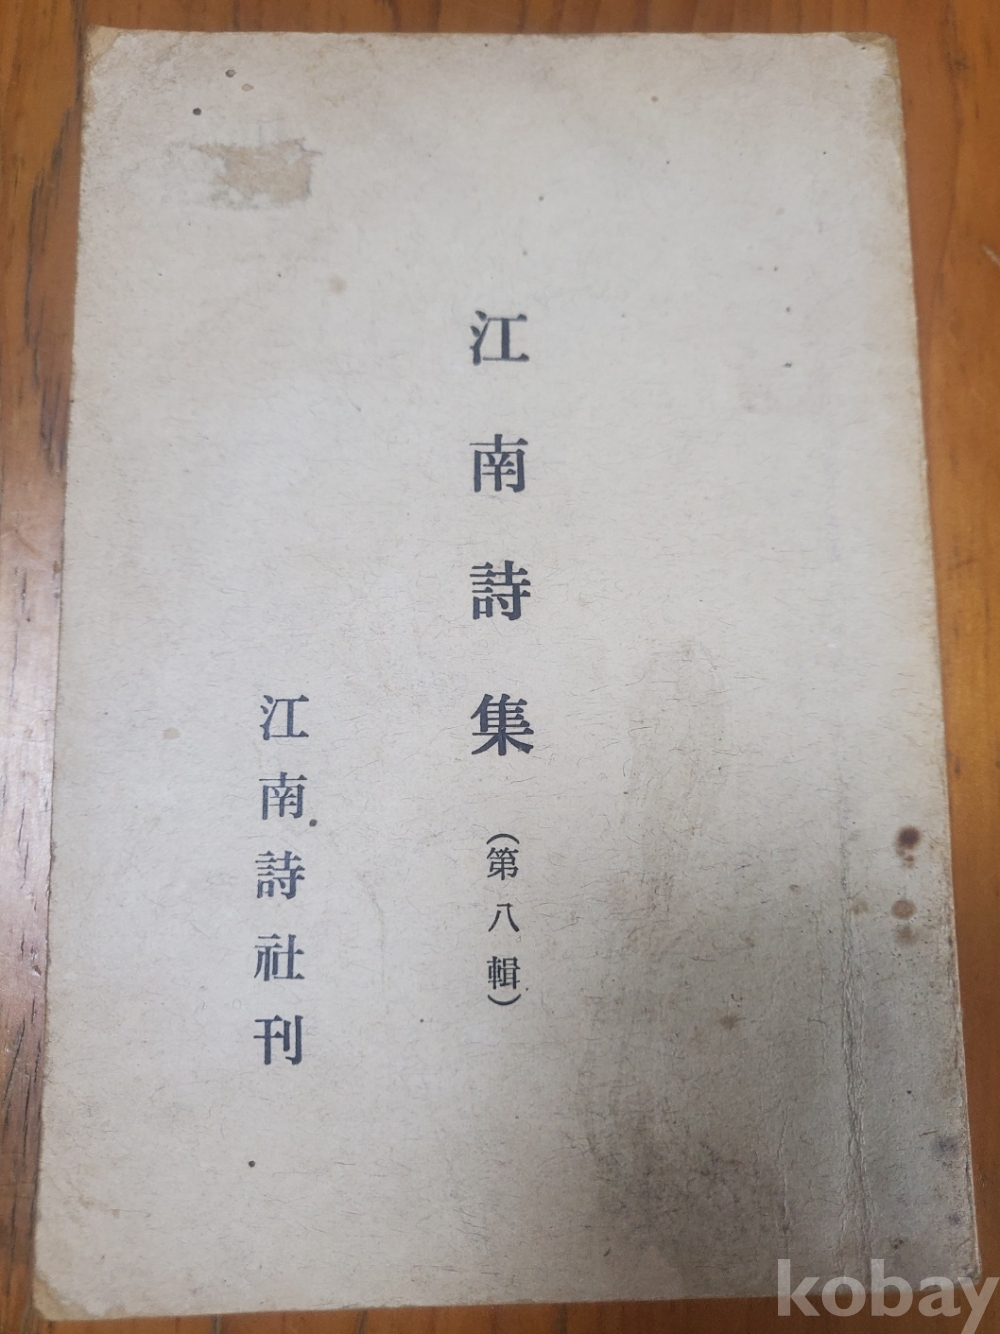 江南詩集(第八輯)
江南詩社刊
kobay